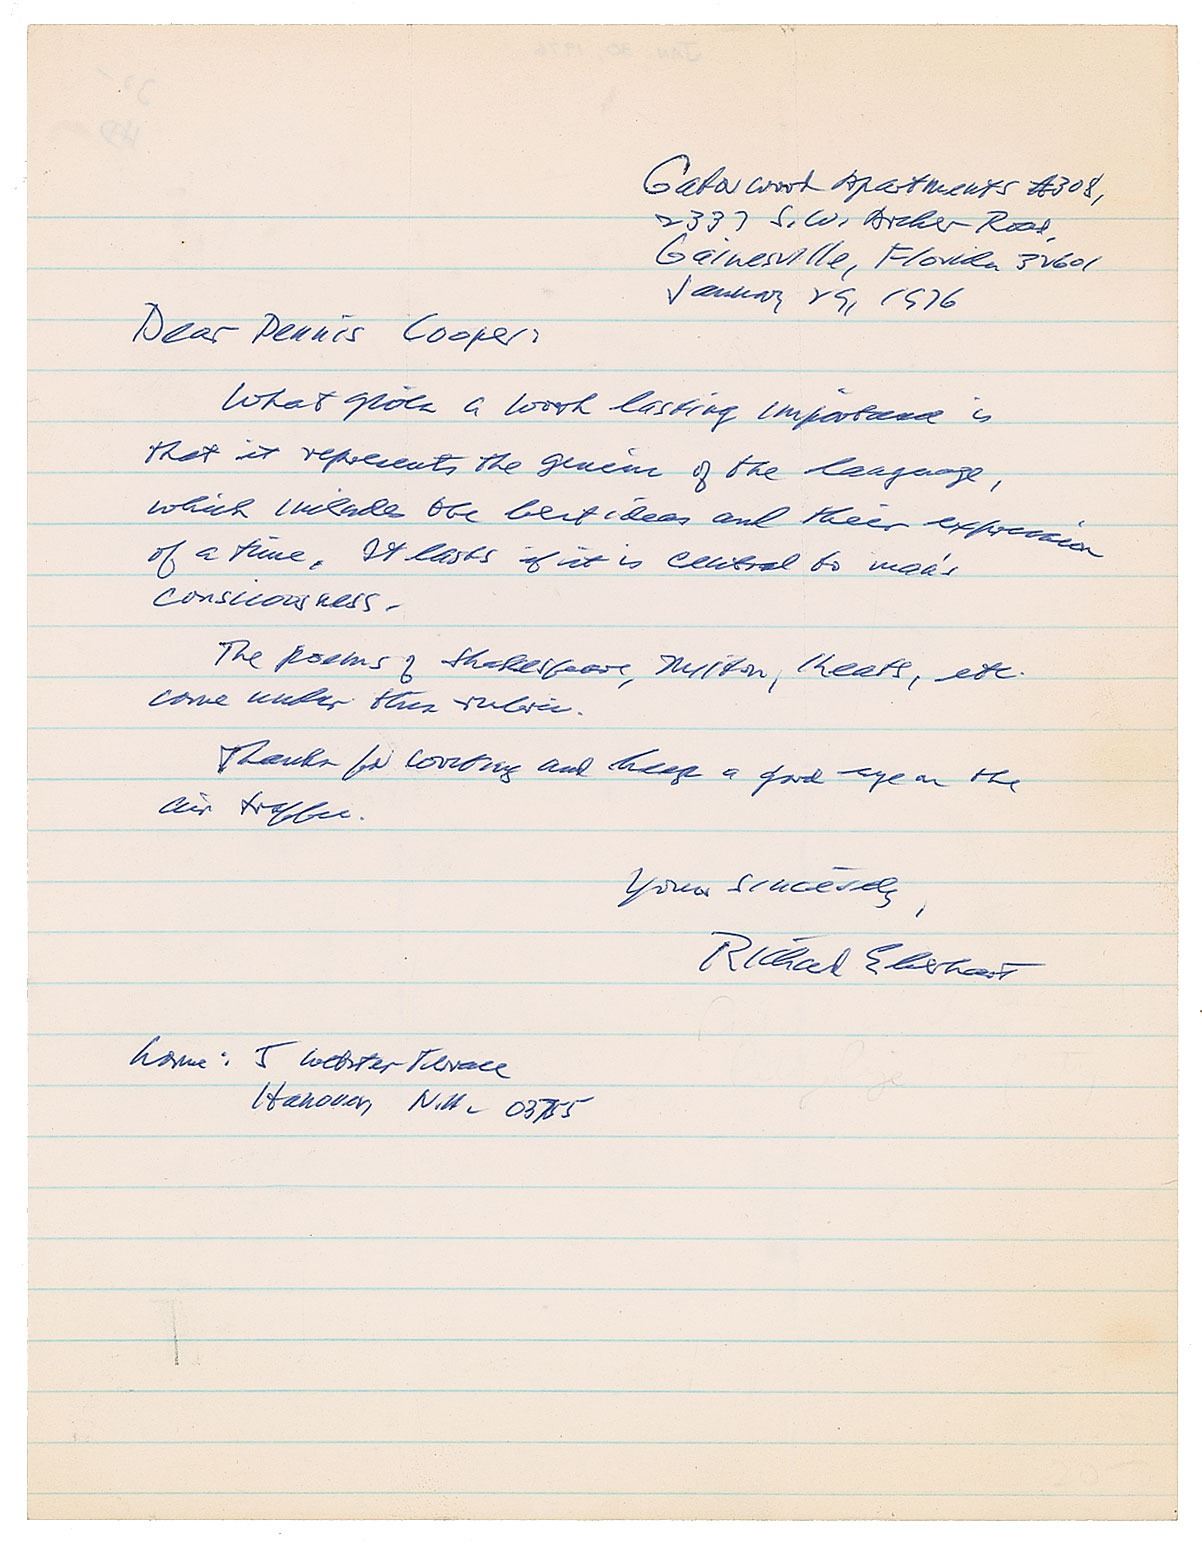 Gatorwood Apartments #308,
2337 S.W. Archer Road,
Gainesville, Florida 32601
January 29, 1976
Dear Dennis Cooper:
What gives a work lasting importance is
that it represents the genius of the language,
which includes the best ideas and their expression
of a time. It lasts if it is central to man's
consciousness.
The poems of Shakespeare, Milton, Keats, etc.
come under this rubric.
Thanks for writing and keep a good eye on the
air traffic.
Yours sincerely,
Richard Eberhart
home: 5 Webster Terrace
Hanover, N.H. 03755
JAN. 30, 1976